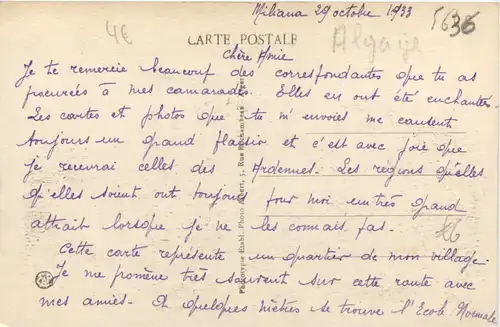 Miliana 29 octobre 1933
4€
5636
CARTE POSTALE
Algérie
Chère Amie
Je te remercie beaucoup des correspondantes que tu as
procurées à mes camarades. Elles en ont été enchantées
Les cartes et photos que tu m'envoies me causent
toujours un grand plaisir et c'est avec joie que
je recevrai celles des Ardennes. Les régions qu'elles
qu'elles soient ont toujours pour moi un très grand
attrait lorsque je ne les connais pas.
Cette carte représente un quartier de mon village.
Je me promène très souvent sur cette route avec
mes amies. A quelques mètres se trouve l'Ecole Normale
Phototypie Etabl. Photo Albert, 5, Rue Alger